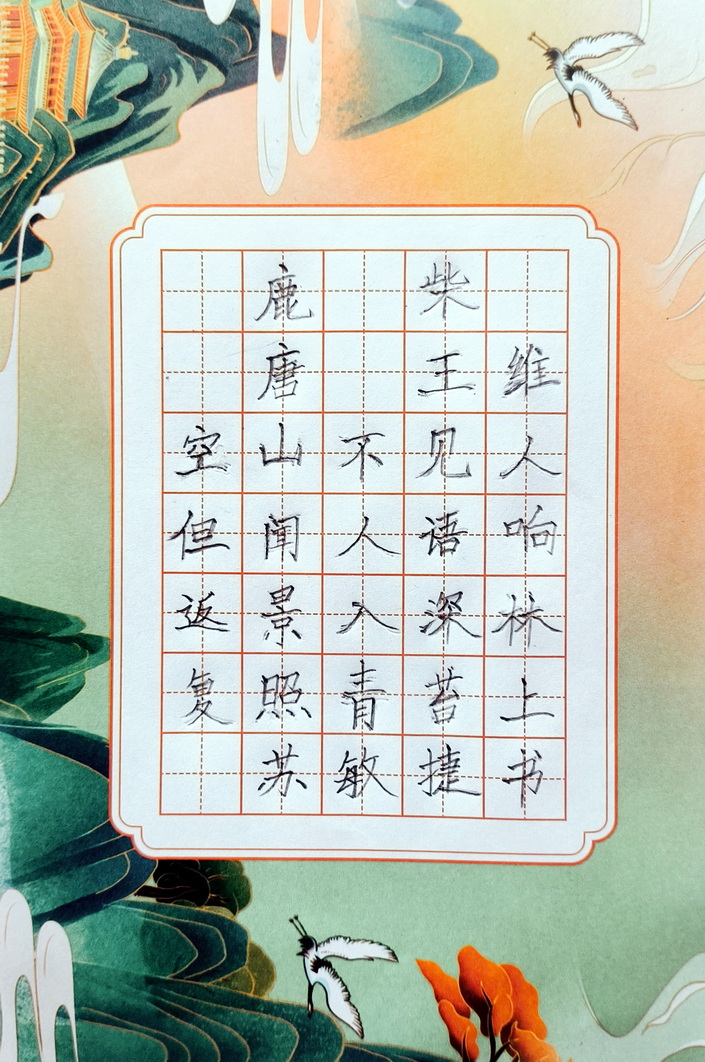 鹿柴
唐王维
空山不见人
但闻人语响
返景入深林
复照青苔上
苏敏捷书